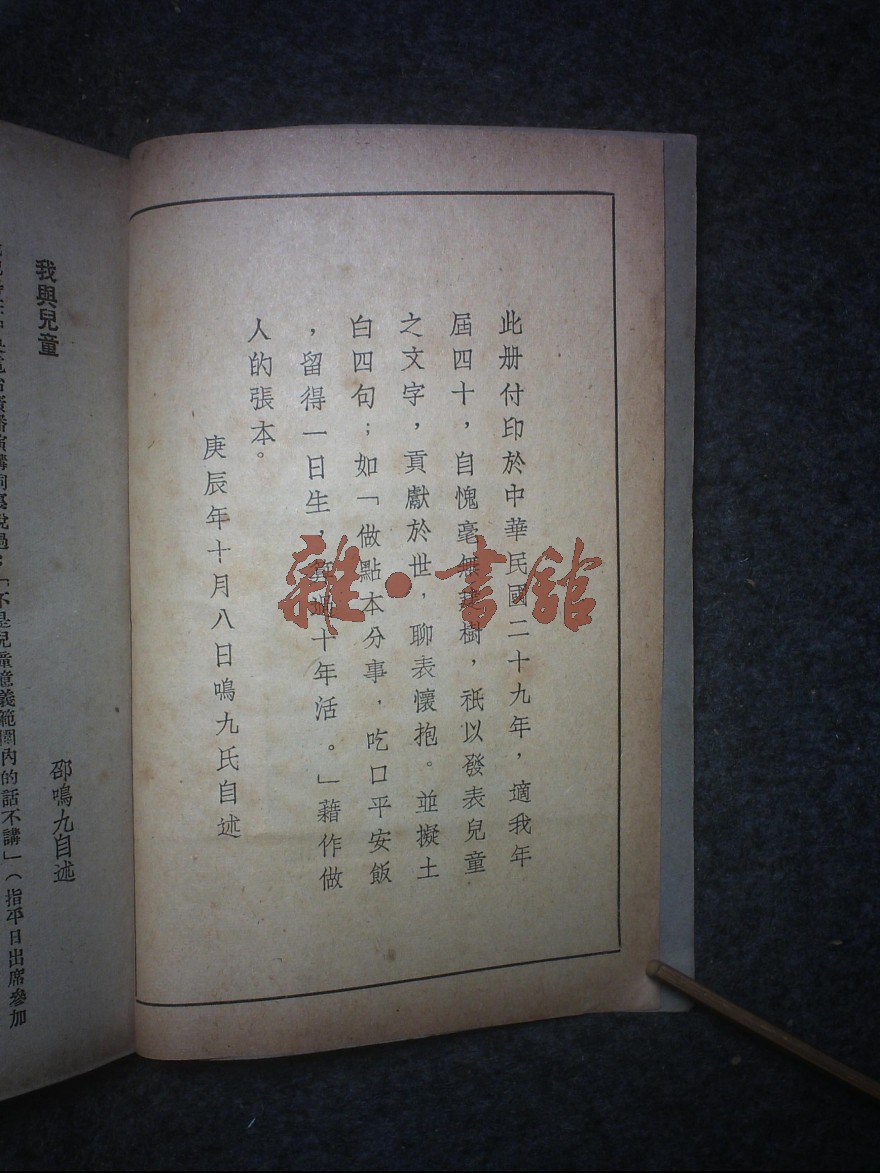 此册付印於中華民國二十九年，適我年
屆四十，自愧毫無建樹，祇以發表兒童
之文字，貢獻於世，聊表懷抱。並擬土
白四句；如「做點本分事，吃口平安飯
，留得一日生，算過十年活。」藉作做
人的張本。
庚辰年十月八日鳴九氏自述
雜·書館
我與兒童
邵鳴九自述
演講詞裏說過：「不是兒童意義範圍內的話不講」（指平日出席參加